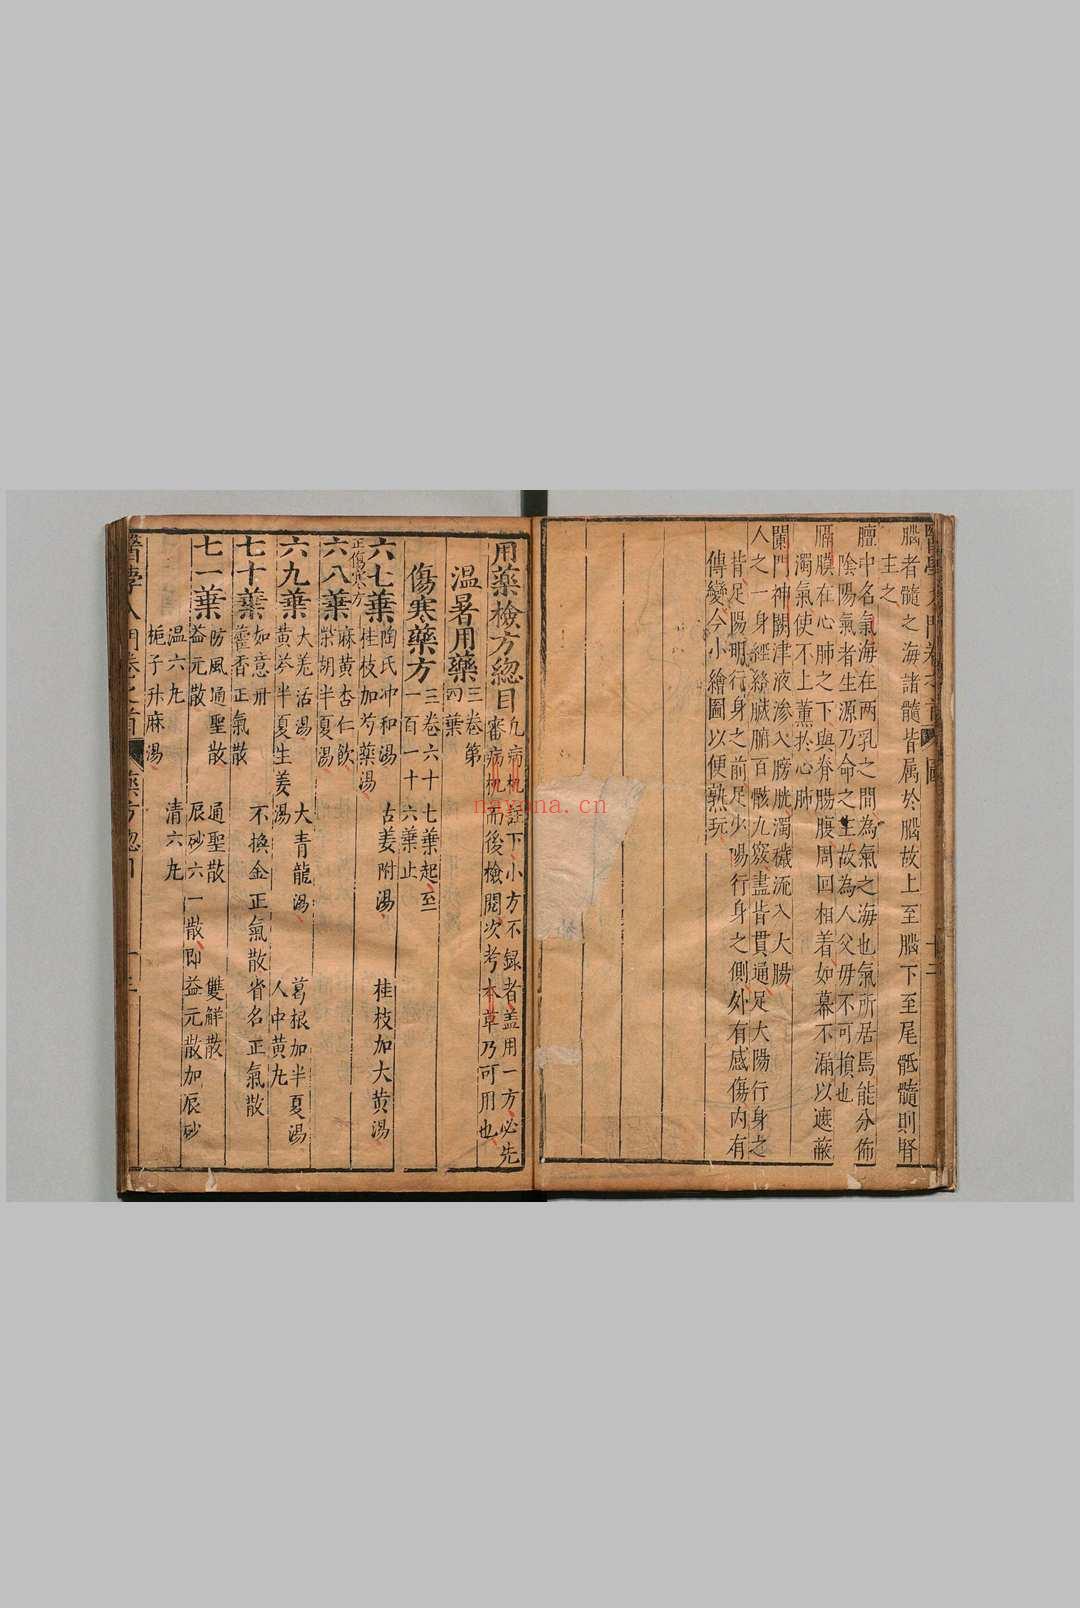 腦者髓之海諸髓皆属於腦故上至腦下至尾骶髓則腎
主之
膻中名氣海在两乳之間為氣之海也氣所居焉能分佈
陰陽氣者生源乃命之主故為人父母不可損也
膈膜在心肺之下與脊腸腹周回相着如幕不漏以遮蔽
濁氣使不上薫於心肺
闌門神關津液渗入膀胱濁穢流入大腸
人之一身經絡臓腑百骸九竅盡皆貫通足大陽行身之
背足陽明行身之前足少陽行身之側外有感傷内有
傳變今小繪圖以便熟玩
用藥檢方總目
凢病机註下小方不録者盖用一方必先
審病机而後檢閱次考本草乃可用也
温暑用藥 三卷第
四葉
傷寒藥方 三卷六十七葉起至
一百一十六葉止
六七葉 陶氏冲和湯 古姜附湯 桂枝加大黄湯
正傷寒方 桂枝加芍藥湯
六八葉 麻黄杏仁飲
柴胡半夏湯
六九葉 大羌活湯 大青龍湯 葛根加半夏湯
黄芩半夏生姜湯 人中黄九
七十葉 如意卅 不換金正氣散省名正氣散
藿香正氣散
七一葉 防風通聖散 通聖散 雙解散
益元散 辰砂六一散即益元散加辰砂
温六九 清六九
梔子升麻湯
醫學入門卷之首 藥方總目 十三
nayona.cn